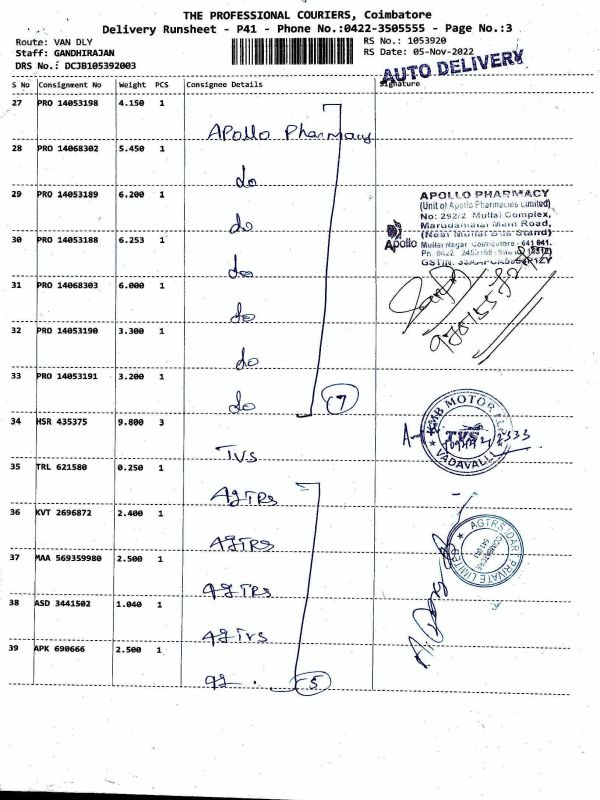 THE PROFESSIONAL COURIERS, Coimbatore
Delivery Runsheet - P41 - Phone No.:0422-3505555 - Page No.:3
Route: VAN DLY
Staff: GANDHIRAJAN
DRS No.: DCJB105392003
RS No.: 1053920
RS Date: 05-Nov-2022
AUTO DELIVERY
S No Consignment No Weight PCS Consignee Details Signature
27 PRO 14053198 4.150 1
Apollo Pharmacy
28 PRO 14068302 5.450 1
do
29 PRO 14053189 6.200 1
do
30 PRO 14053188 6.253 1
do
31 PRO 14068303 6.000 1
do
32 PRO 14053190 3.300 1
do
33 PRO 14053191 3.200 1
do
7
APOLLO PHARMACY
(Unit of Apollo Pharmacies Limited)
No: 292/2 Mullai Complex,
Marudamalai Main Road,
(Near Mullai Bus Stand)
Mullai Nagar Coimbatore - 641 041.
Apollo
34 HSR 435375 9.800 3
TVS
VADAVALLI
35 TRL 621580 0.250 1
AGTRS
36 KVT 2696872 2.400 1
AGTRS
37 MAA 569359980 2.500 1
AGTRS
38 ASD 3441502 1.040 1
AGTVS
39 APK 690666 2.500 1
5